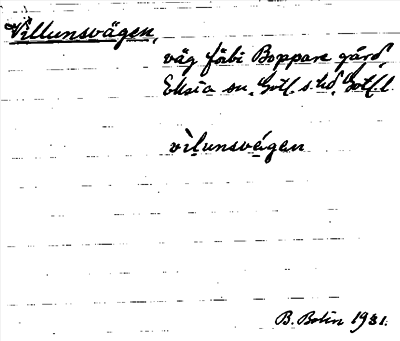 Villunsvägen,
väg förbi Boppare gård,
Eksta sn. Gotl. s. hd. Gotl. l.
vilunsvägen
B. Bolin 1931.